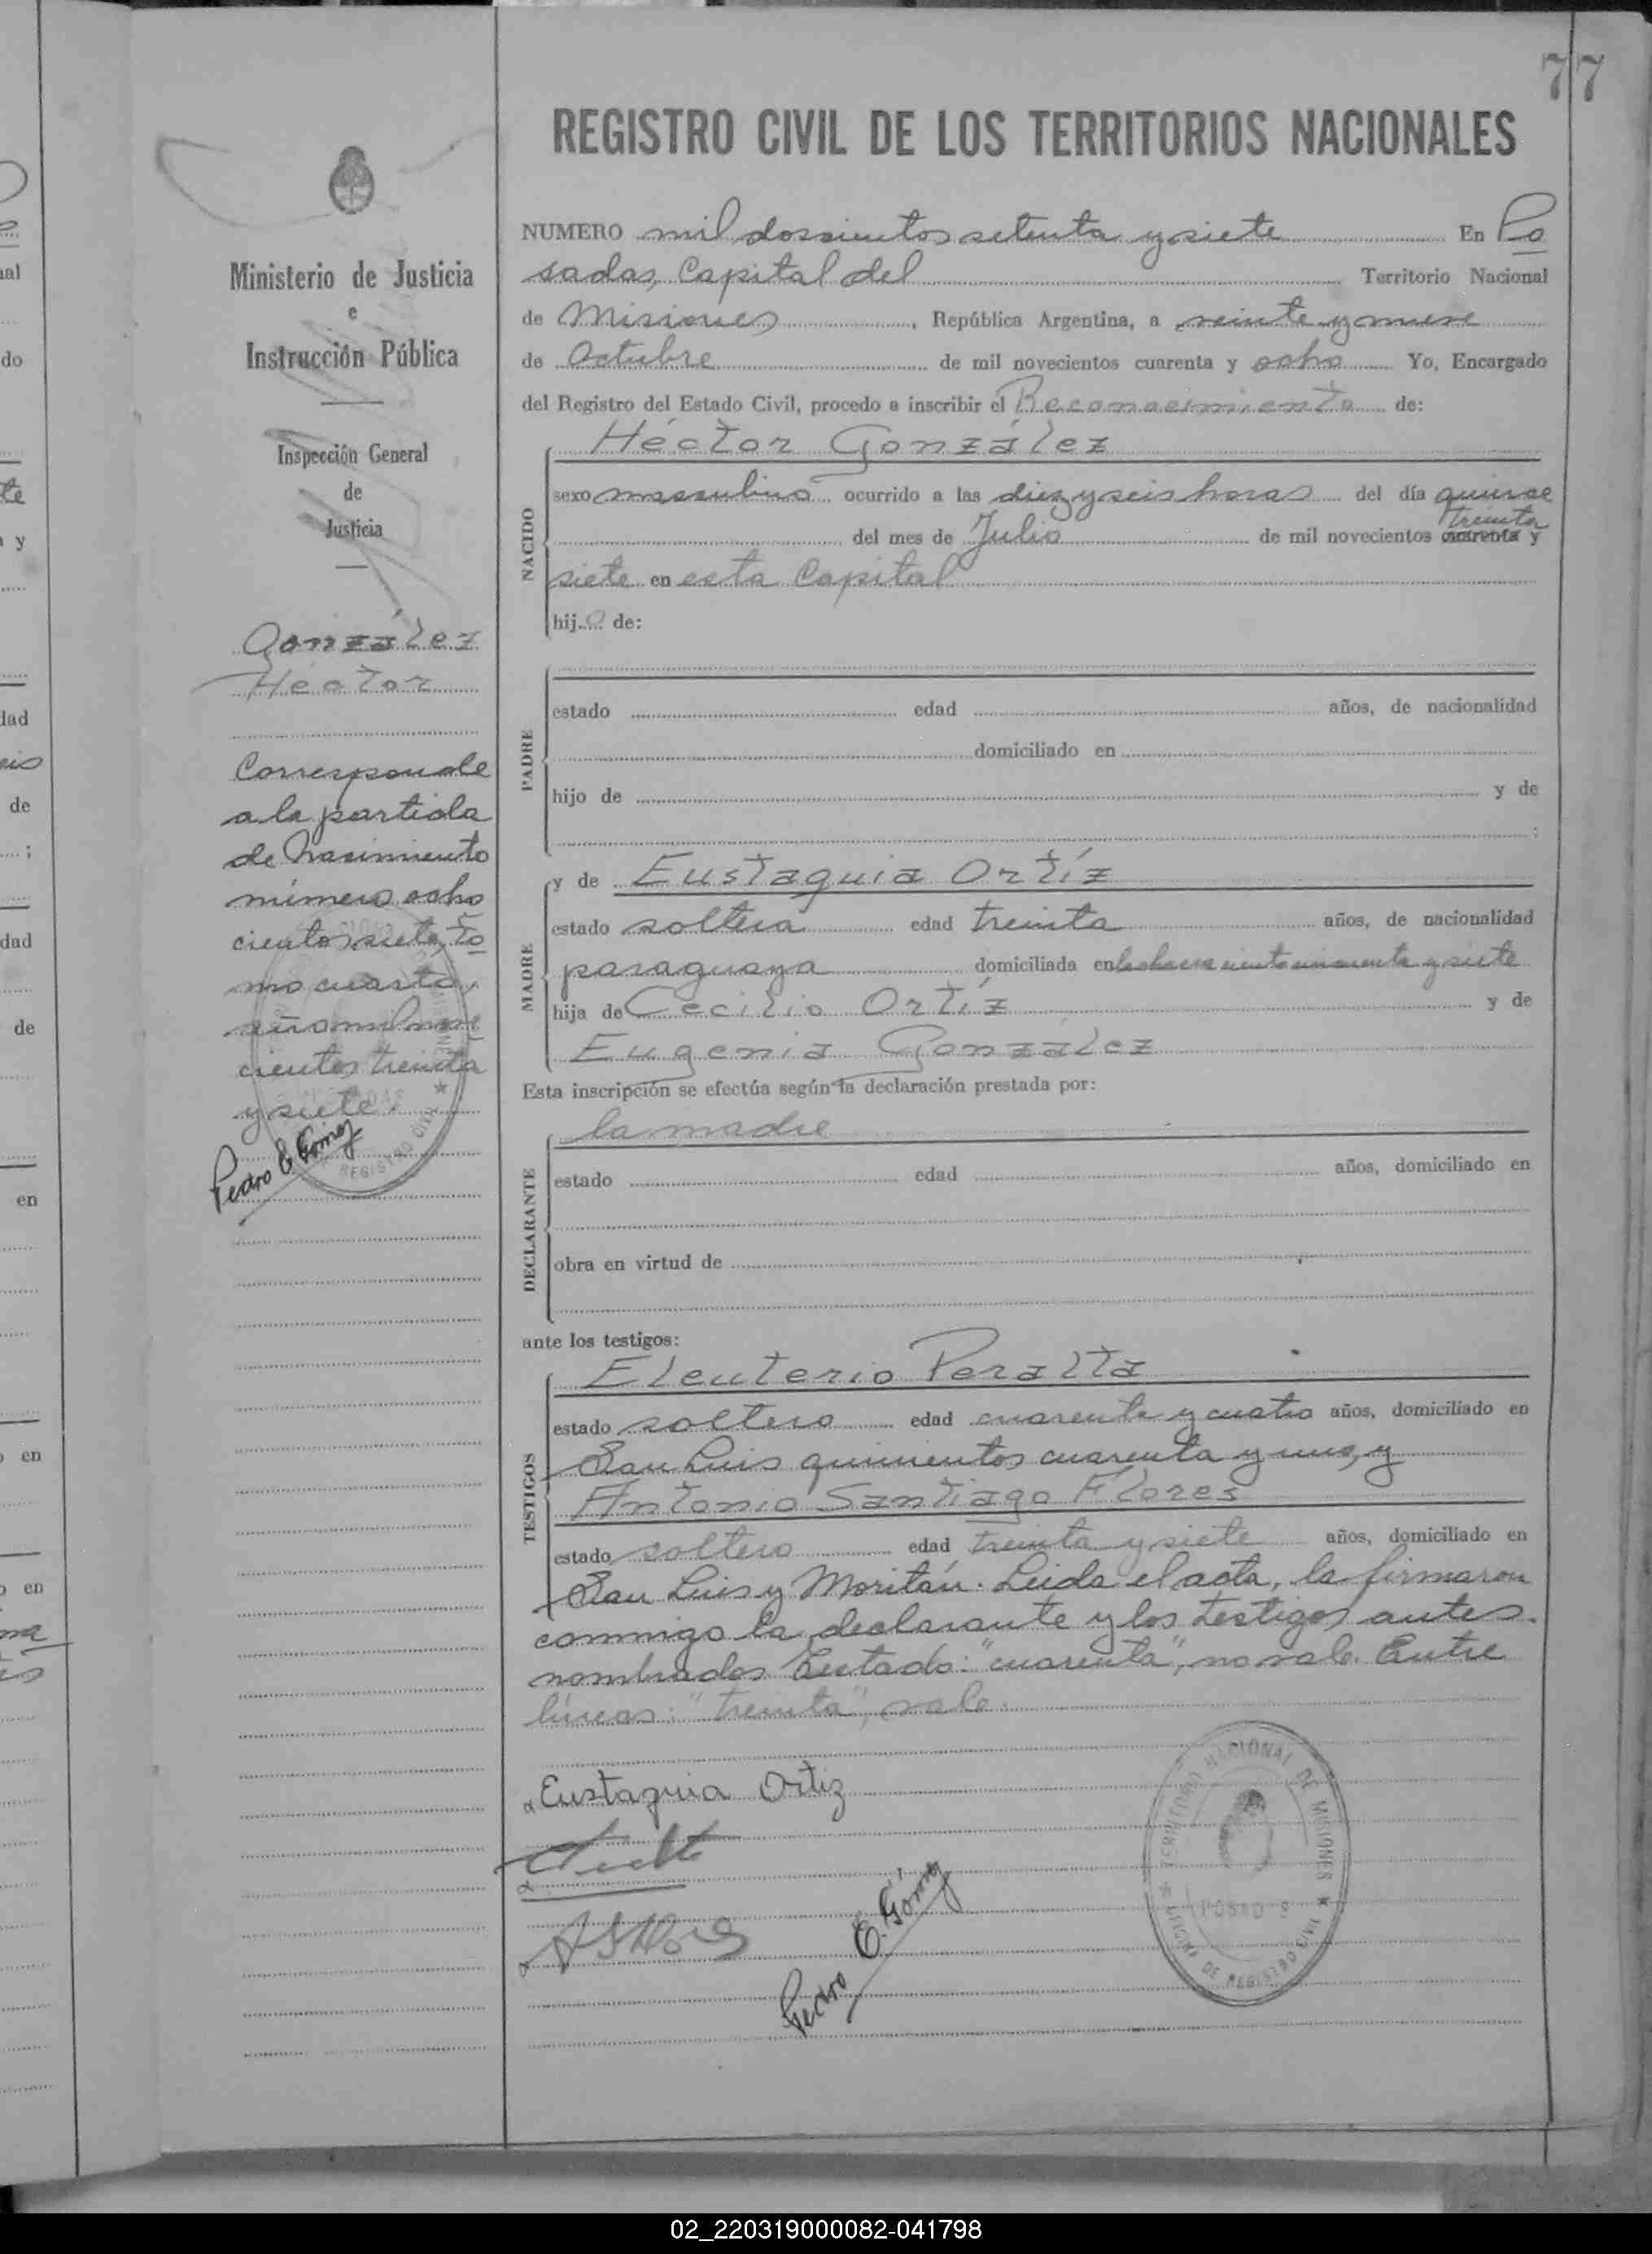 77
REGISTRO CIVIL DE LOS TERRITORIOS NACIONALES
Ministerio de Justicia
e
Instrucción Pública
Inspección General
de
Justicia
González
Héctor
Corresponde
a la partida
de Nacimiento
número ocho
cientos siete, to
mo cuarto,
año mil nove
cientos treinta
y siete.
Pedro E Gómez
NUMERO mil doscientos setenta y siete En Po
sadas, Capital del Territorio Nacional
de Misiones, República Argentina, a veinte y nueve
de Octubre de mil novecientos cuarenta y ocho Yo, Encargado
del Registro del Estado Civil, procedo a inscribir el Reconocimiento de:
Héctor González
NACIDO
sexo masculino ocurrido a las diez y seis horas del día quince
treinta
del mes de Julio de mil novecientos cuarenta y
siete en esta Capital
hijo de:
PADRE
estado edad años, de nacionalidad
domiciliado en
hijo de y de
;
MADRE
y de Eustaquia Ortíz
estado soltera edad treinta años, de nacionalidad
paraguaya domiciliada en la chacra ciento cincuenta y siete
hija de Cecilio Ortíz y de
Eugenia González
Esta inscripción se efectúa según la declaración prestada por:
la madre
DECLARANTE
estado edad años, domiciliado en
obra en virtud de
ante los testigos:
TESTIGOS
Eleuterio Peralta
estado soltero edad cuarenta y cuatro años, domiciliado en
San Luis quinientos cuarenta y uno, y
Antonio Santiago Flores
estado soltero edad treinta y siete años, domiciliado en
San Luis y Moritán. Leida el acta, la firmaron
conmigo la declarante y los testigos antes
nombrados. Testado: "cuarenta", no vale. Entre
líneas: "treinta", vale.
Eustaquia Ortiz
Pedro E. Gómez
TERRITORIO NACIONAL DE MISIONES
POSADAS
OFICINA DE REGISTRO CIVIL
02_220319000082-041798